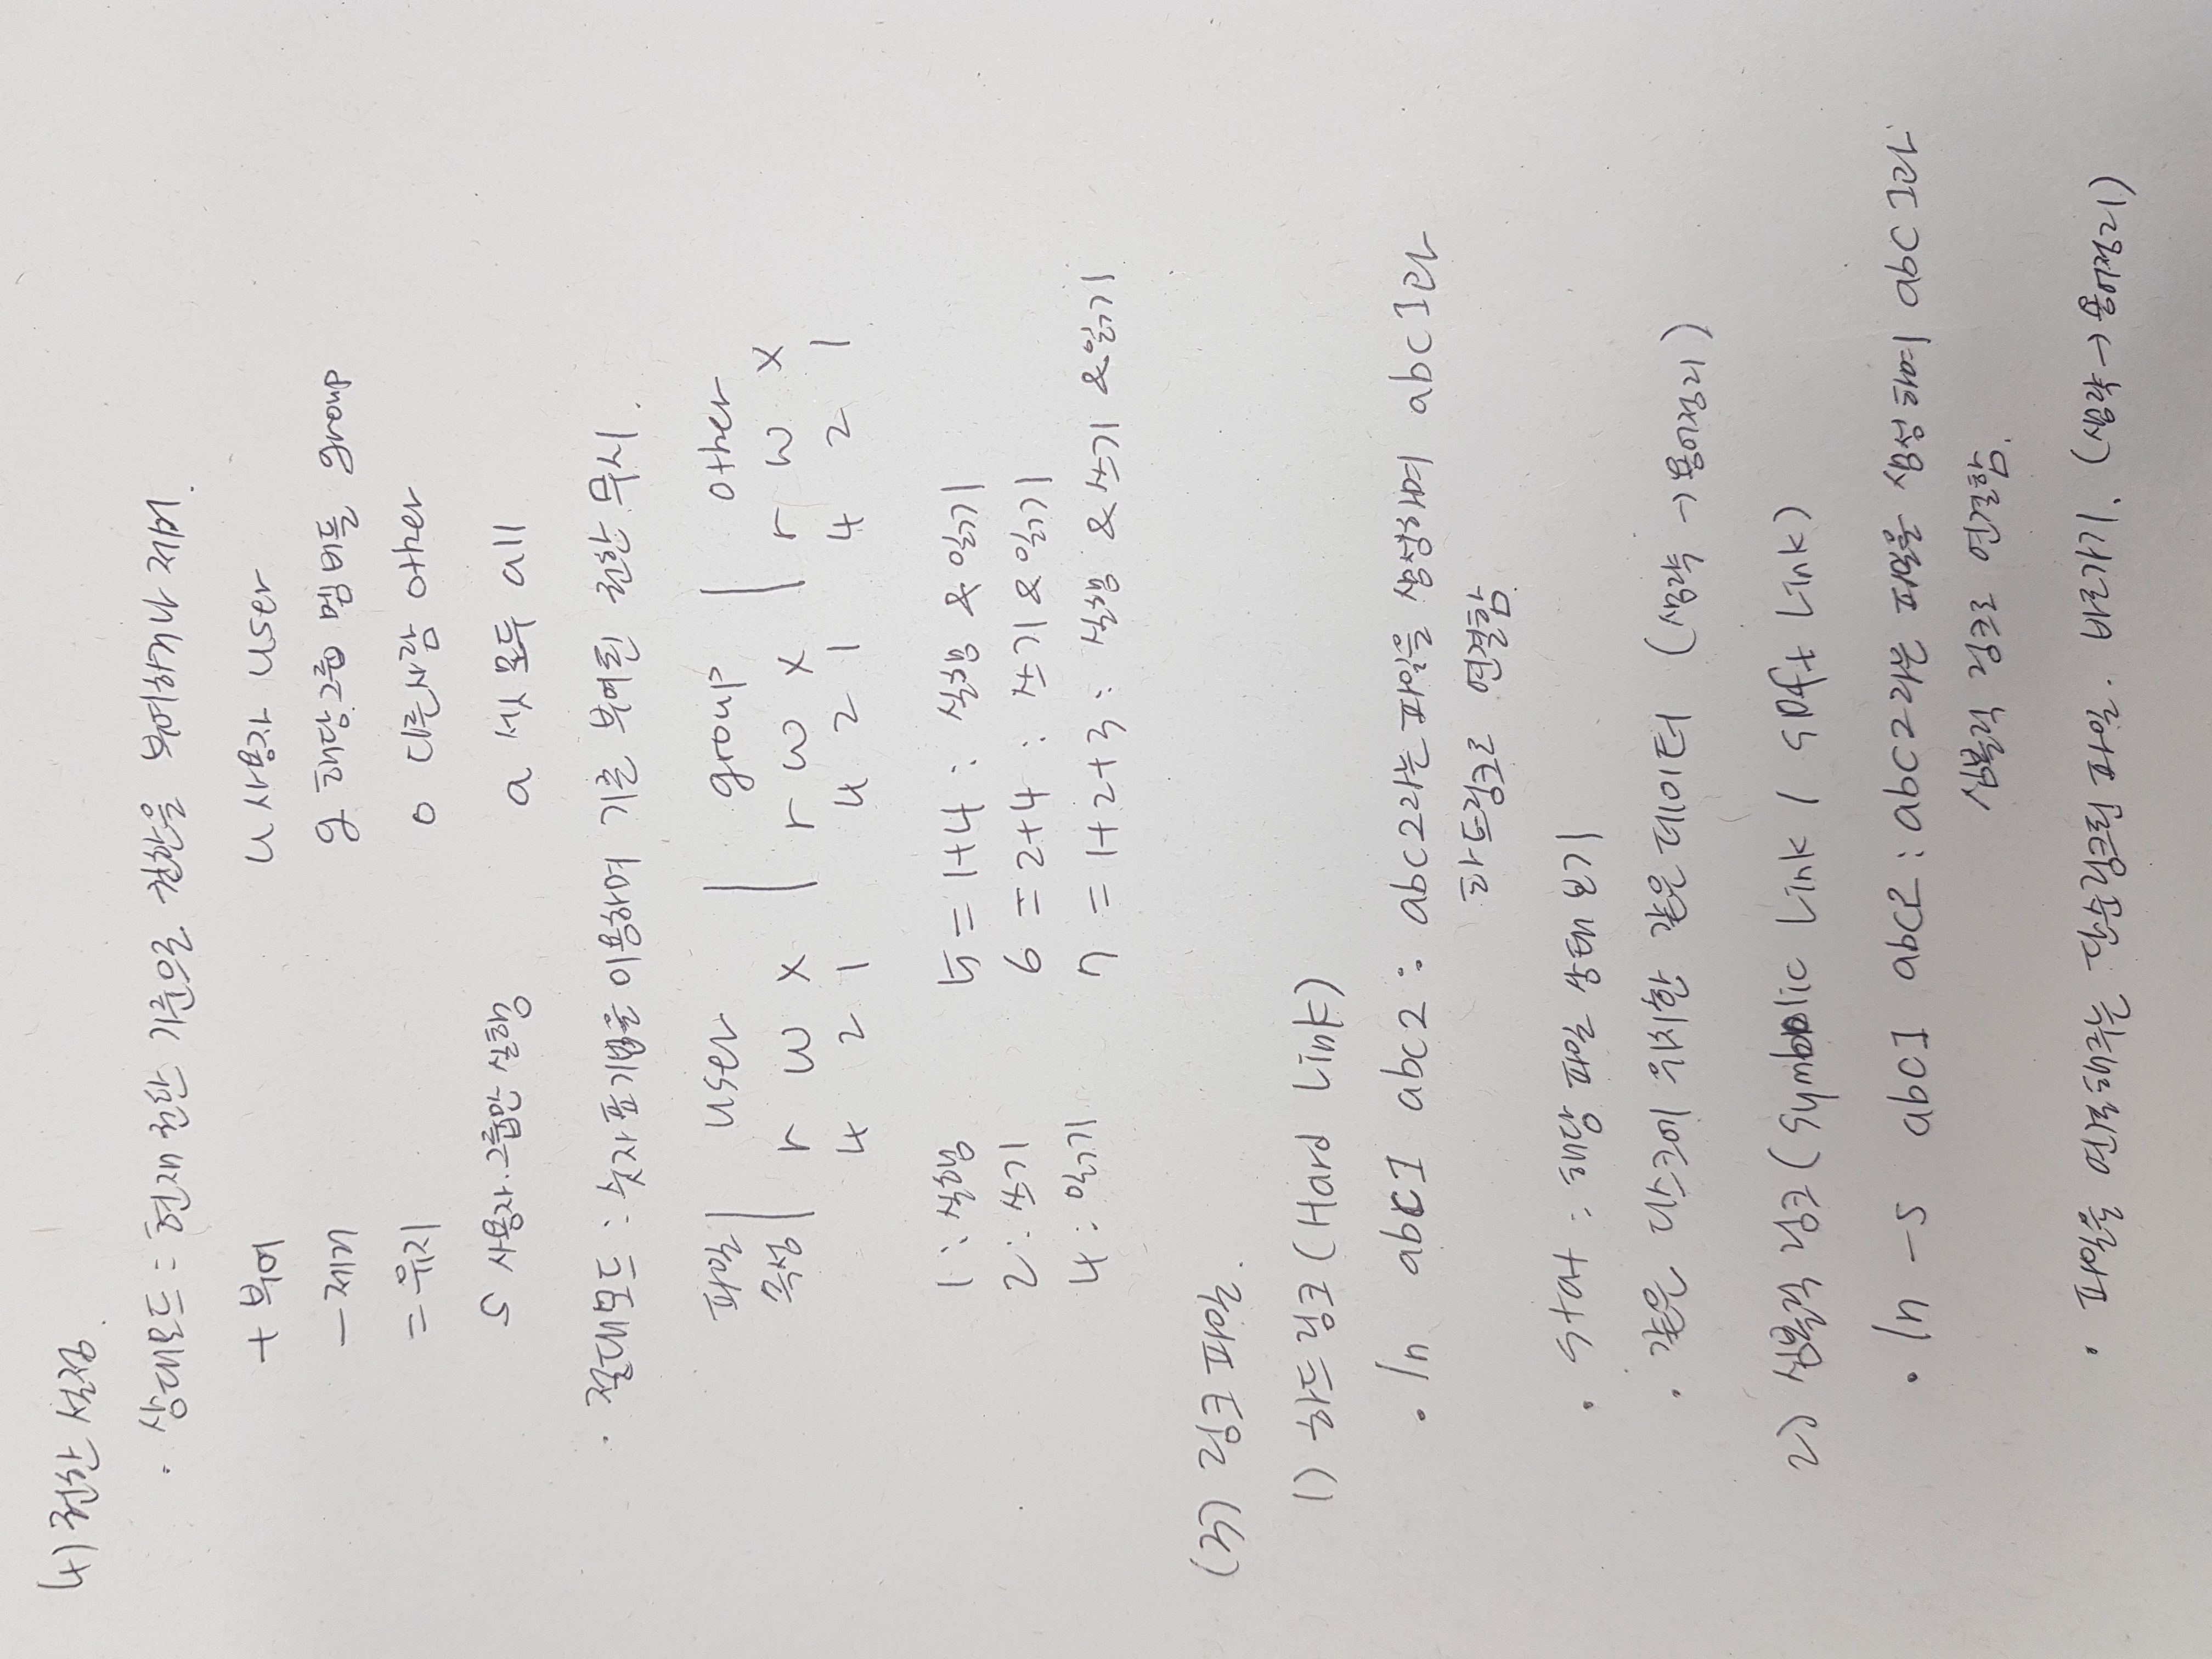 4) 권한 설정.
· 상대모드 : 현재 권한 기준으로 권한을 부여하거나 제거.
+ 부여 u 사용자 user
- 제거 g 해당그룹 멤버들 group
= 유지 o 다른사람 other
s 사용자·그룹만 실행 a 셋 모두 all
· 절대모드 : 숫자표기법을 이용하며 기존 부여된 권한 무시.
파일 | user | group | other
속성 | r w x | r w x | r w x
4 2 1 4 2 1 4 2 1
1 : 실행 5 = 1+4 : 실행 & 읽기
2 : 쓰기 6 = 2+4 : 쓰기 & 읽기
4 : 읽기 7 = 1+2+3 : 실행 & 쓰기 & 읽기
(3) 링크 파일.
1) 하드 링크 (Hard Link)
· ln abc1 abc2 : abc2라는 파일을 생성하며 abc1과
하드링크로 연결함.
· stat : 해당 파일 상태 보기
· 같은 디스크에 위치한 같은 데이터 (생략 → 용어정리)
2) 심볼릭 링크 (Symbolic Link / Soft Link)
· ln -s abc1 abc2 : abc2라는 파일을 생성하며 abc1과
심볼릭 링크로 연결함.
· 파일을 연결해주는 단순링크된 파일. 바로가기. (생략 → 용어정리)